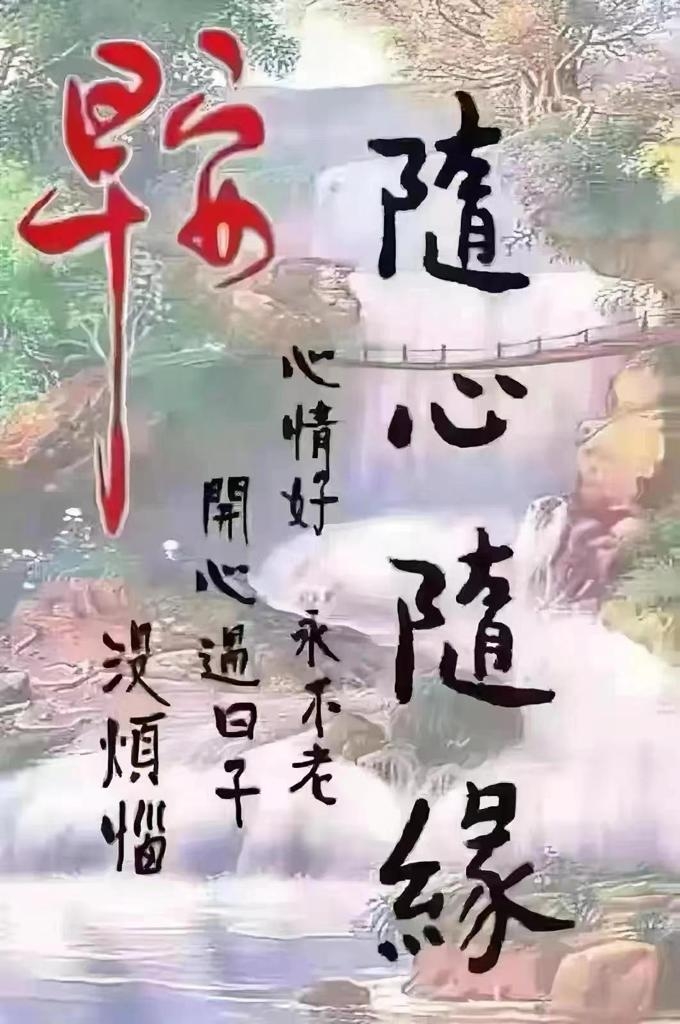 早安
隨心隨緣
心情好
永不老
開心過日子
沒煩惱